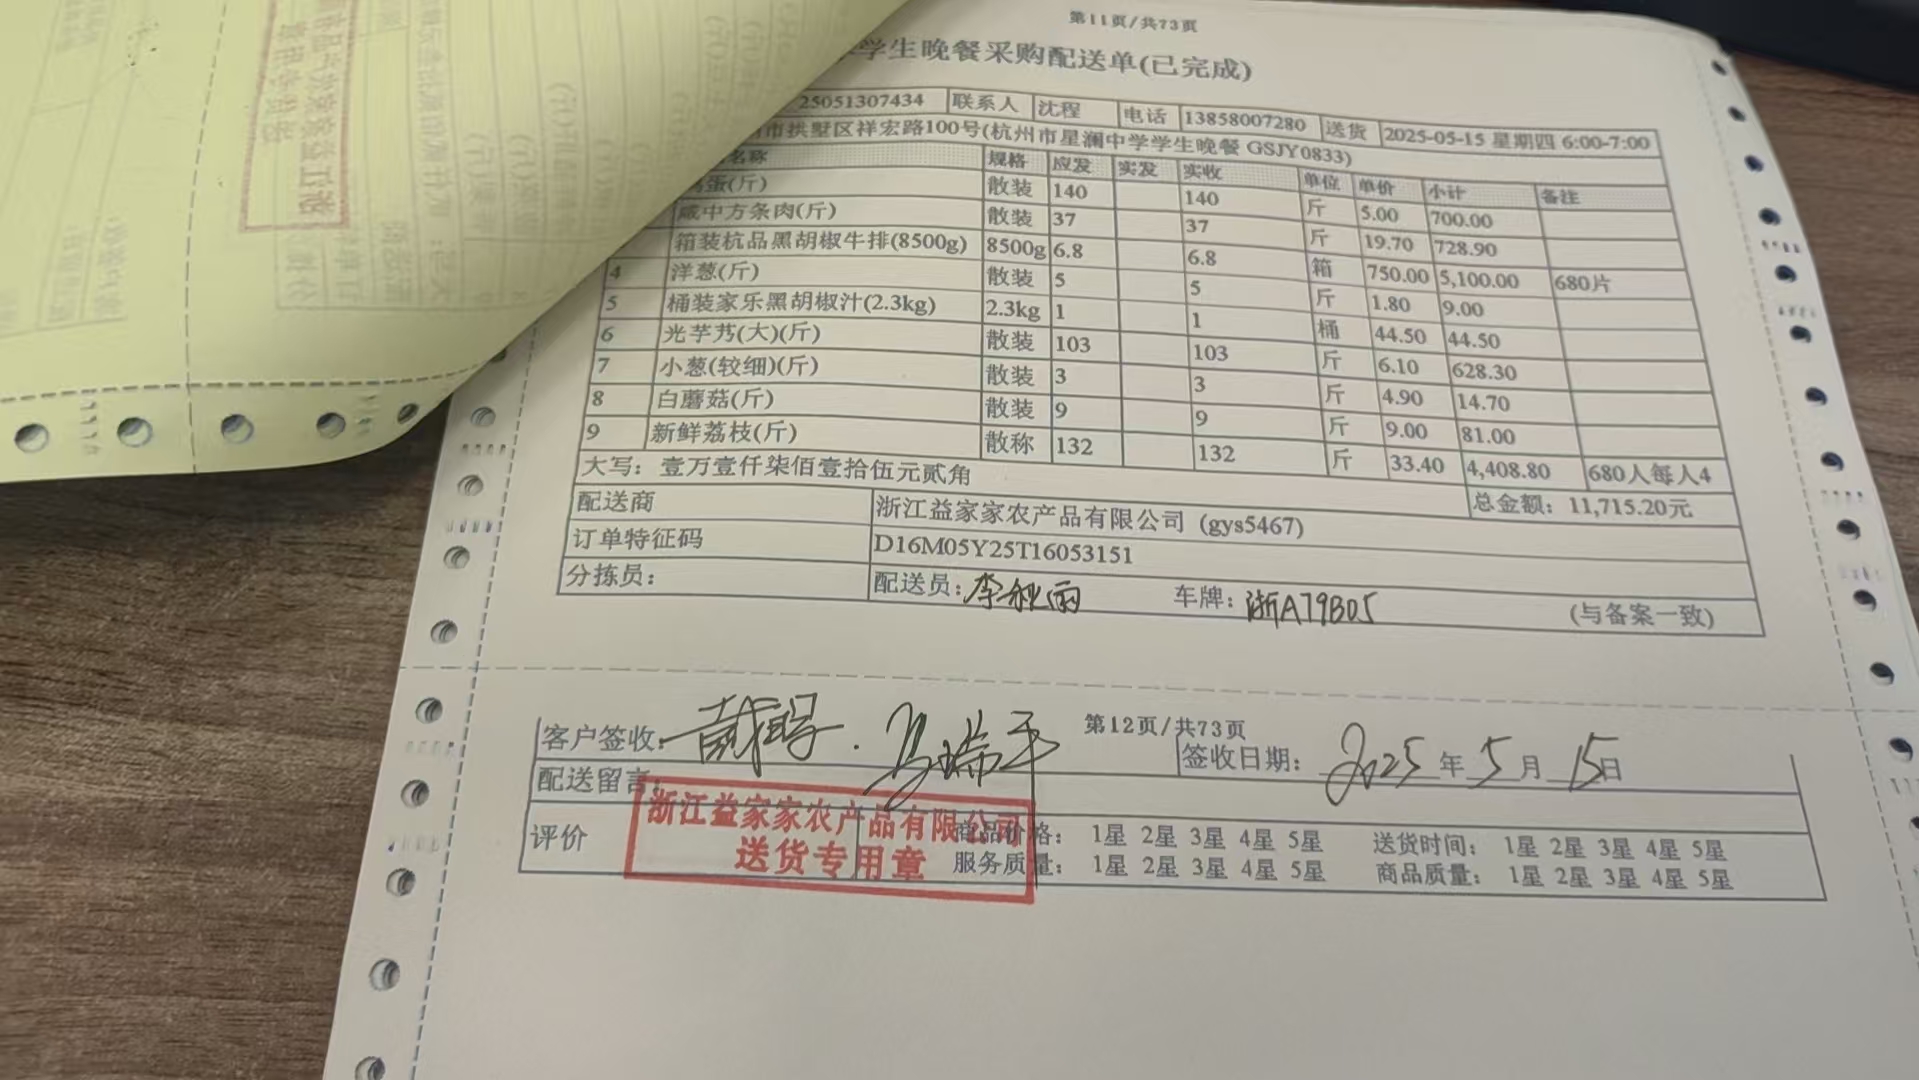 第11页/共73页
学生晚餐采购配送单(已完成)
25051307434 联系人 沈程 电话 13858007280 送货 2025-05-15 星期四 6:00-7:00
市拱墅区祥宏路100号(杭州市星澜中学学生晚餐 GSJY0833)
名称 规格 应发 实发 实收 单位 单价 小计 备注
蛋(斤) 散装 140 140 斤 5.00 700.00
咸中方条肉(斤) 散装 37 37 斤 19.70 728.90
箱装杭品黑胡椒牛排(8500g) 8500g 6.8 6.8 箱 750.00 5,100.00 680片
4 洋葱(斤) 散装 5 5 斤 1.80 9.00
5 桶装家乐黑胡椒汁(2.3kg) 2.3kg 1 1 桶 44.50 44.50
6 光芋艿(大)(斤) 散装 103 103 斤 6.10 628.30
7 小葱(较细)(斤) 散装 3 3 斤 4.90 14.70
8 白蘑菇(斤) 散装 9 9 斤 9.00 81.00
9 新鲜荔枝(斤) 散称 132 132 斤 33.40 4,408.80 680人每人4
大写：壹万壹仟柒佰壹拾伍元贰角 总金额：11,715.20元
配送商 浙江益家家农产品有限公司 (gys5467)
订单特征码 D16M05Y25T16053151
分拣员： 配送员：李秋丽 车牌：浙A79B05 (与备案一致)
第12页/共73页
客户签收： 签收日期：2025年5月15日
配送留言：
浙江益家家农产品有限公司
送货专用章
评价 商品价格： 1星 2星 3星 4星 5星 送货时间： 1星 2星 3星 4星 5星
服务质量： 1星 2星 3星 4星 5星 商品质量： 1星 2星 3星 4星 5星